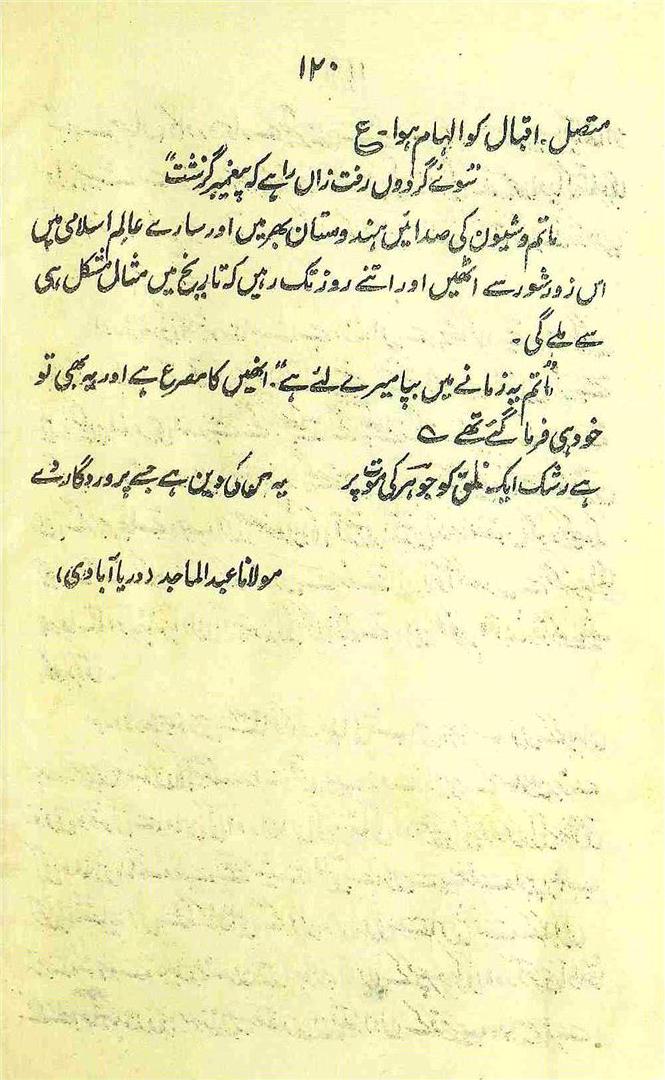 ۱۲۰
متصل۔ اقبال کو الہام ہوا۔ ع
"سوئے گردوں رفت زاں راہے کہ پیغمبر گزشت"
ماتم و شیون کی صدائیں ہندوستان بھر میں اور سارے عالمِ اسلامی میں
اس زور شور سے اٹھیں اور اتنے روز تک رہیں کہ تاریخ میں مثال مشکل ہی
سے ملے گی۔
"ماتم یہ زمانے میں بپا میرے لئے ہے"۔ انھیں کا مصرع ہے اور یہ بھی تو
خود ہی فرما گئے تھے ؎
ہے رشک ایک خلق کو جوہر کی موت پر یہ اس کی دین ہے جسے پروردگار دے
مولانا عبدالماجد (دریا آبادی)